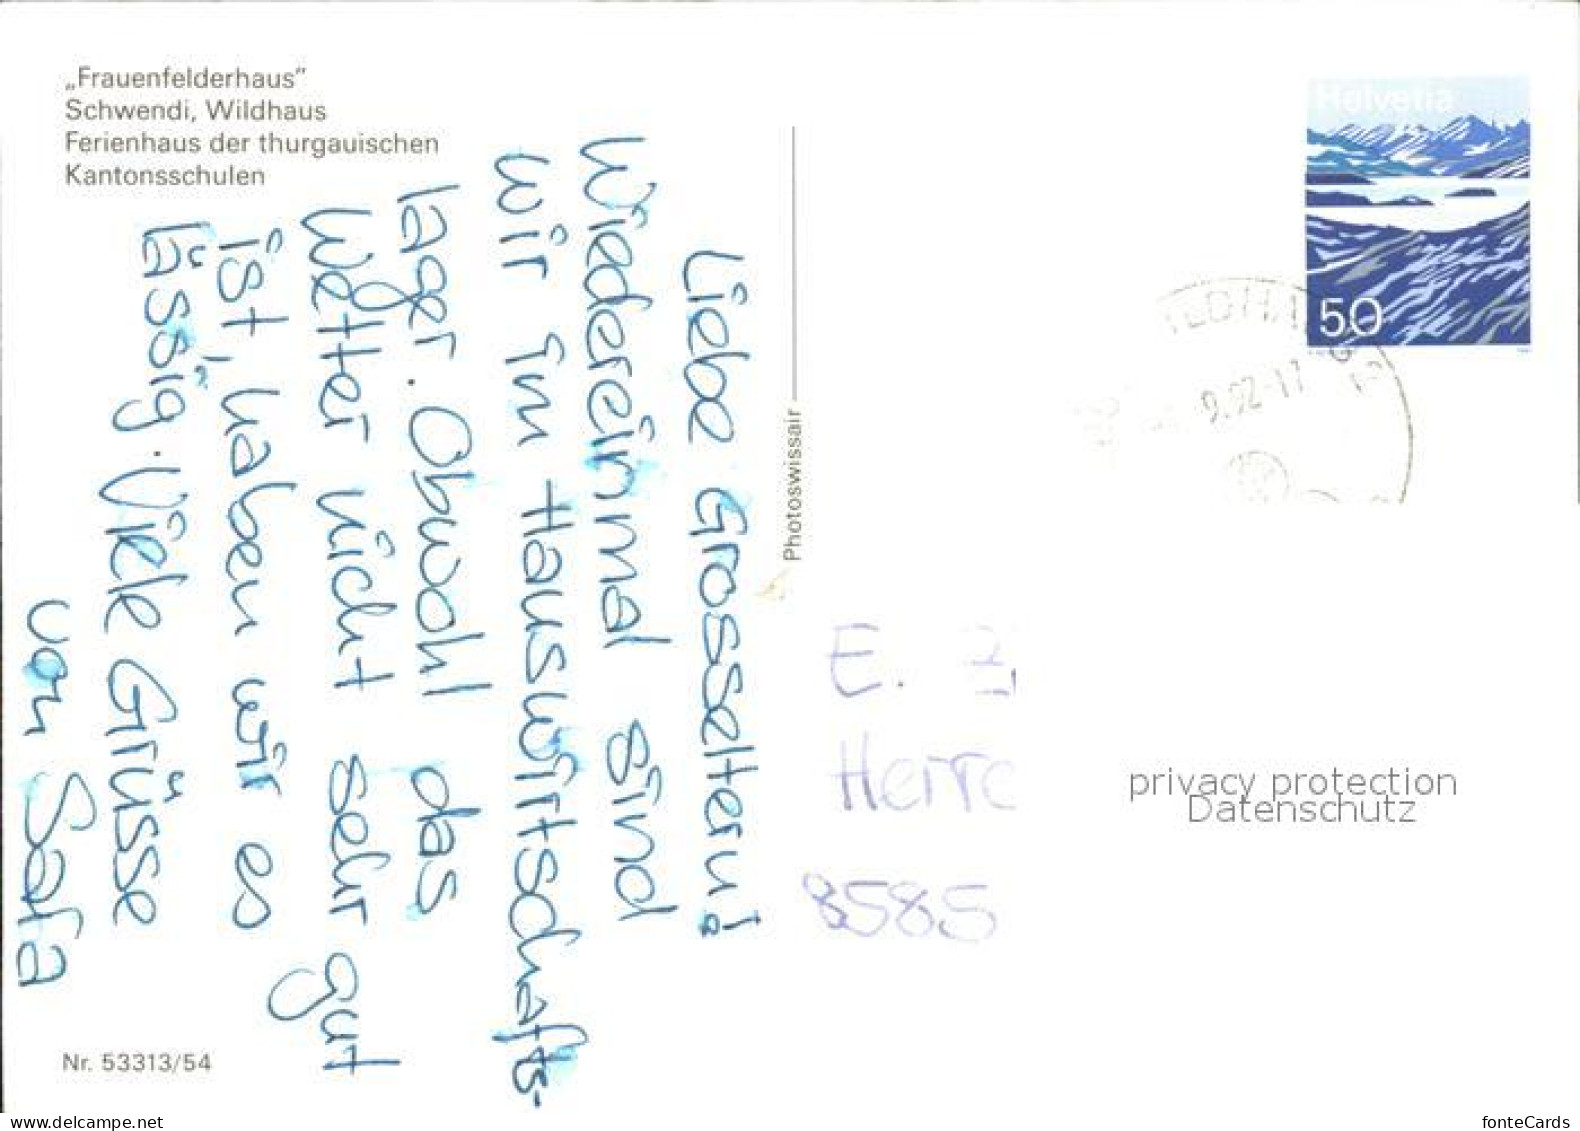 „Frauenfelderhaus"
Schwendi, Wildhaus
Ferienhaus der thurgauischen
Kantonsschulen
Liebe Grosseltern!
Wiedereinmal sind
wir im Hauswirtschafts-
lager. Obwohl das
Wetter nicht sehr gut
ist, haben wir es
lässig. Viele Grüsse
von Safa
Nr. 53313/54
Photoswissair
Helvetia
50
9.92-17
E.
8585
privacy protection
Datenschutz
www.delcampe.net
fonteCards